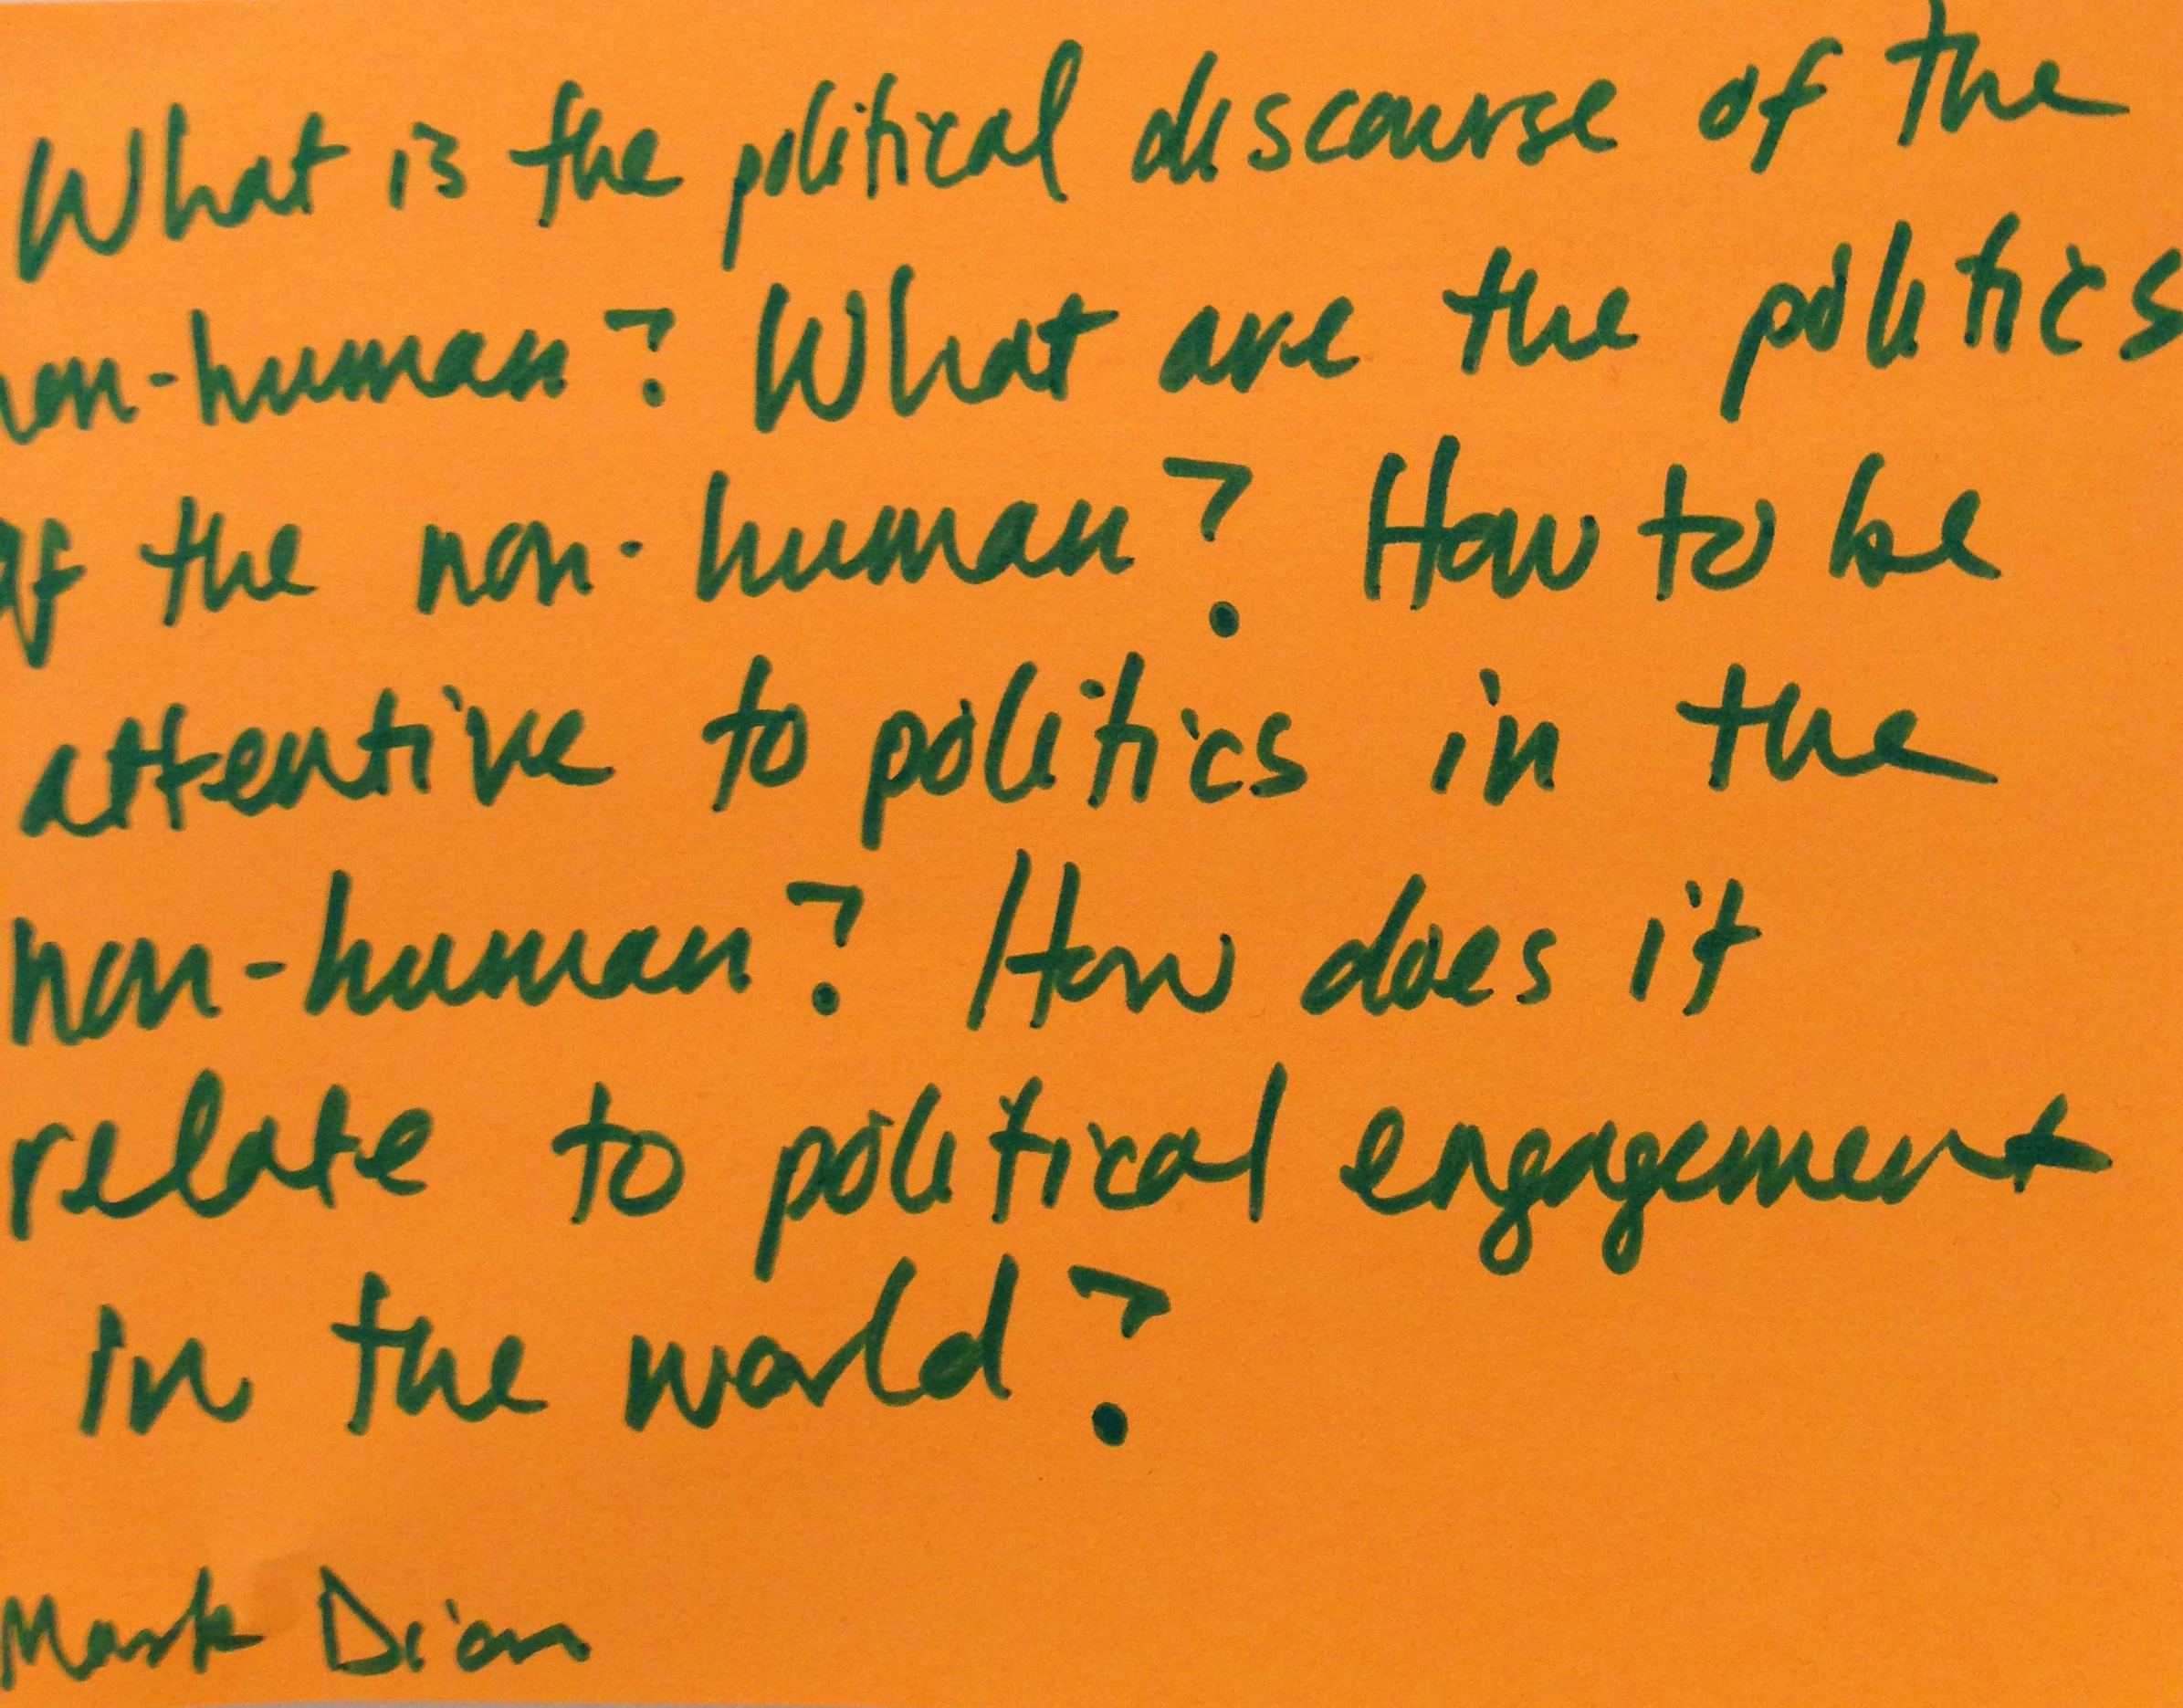 What is the political discourse of the
non-human? What are the politics
of the non-human? How to be
attentive to politics in the
non-human? How does it
relate to political engagement
in the world?
Mark Dion